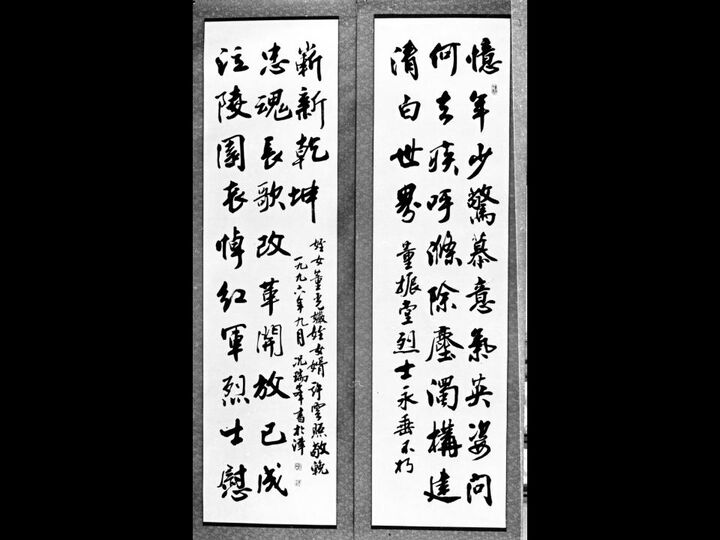 憶年少驚慕意氣英姿問
何去疾呼滌除塵濁構建
清白世界
董振堂烈士永垂不朽
泣陵園哀悼紅軍烈士慰
忠魂長歌改革開放已成
嶄新乾坤
姪女董姪女婿許雲照敬輓
一九九六年九月 瑞峯書於津